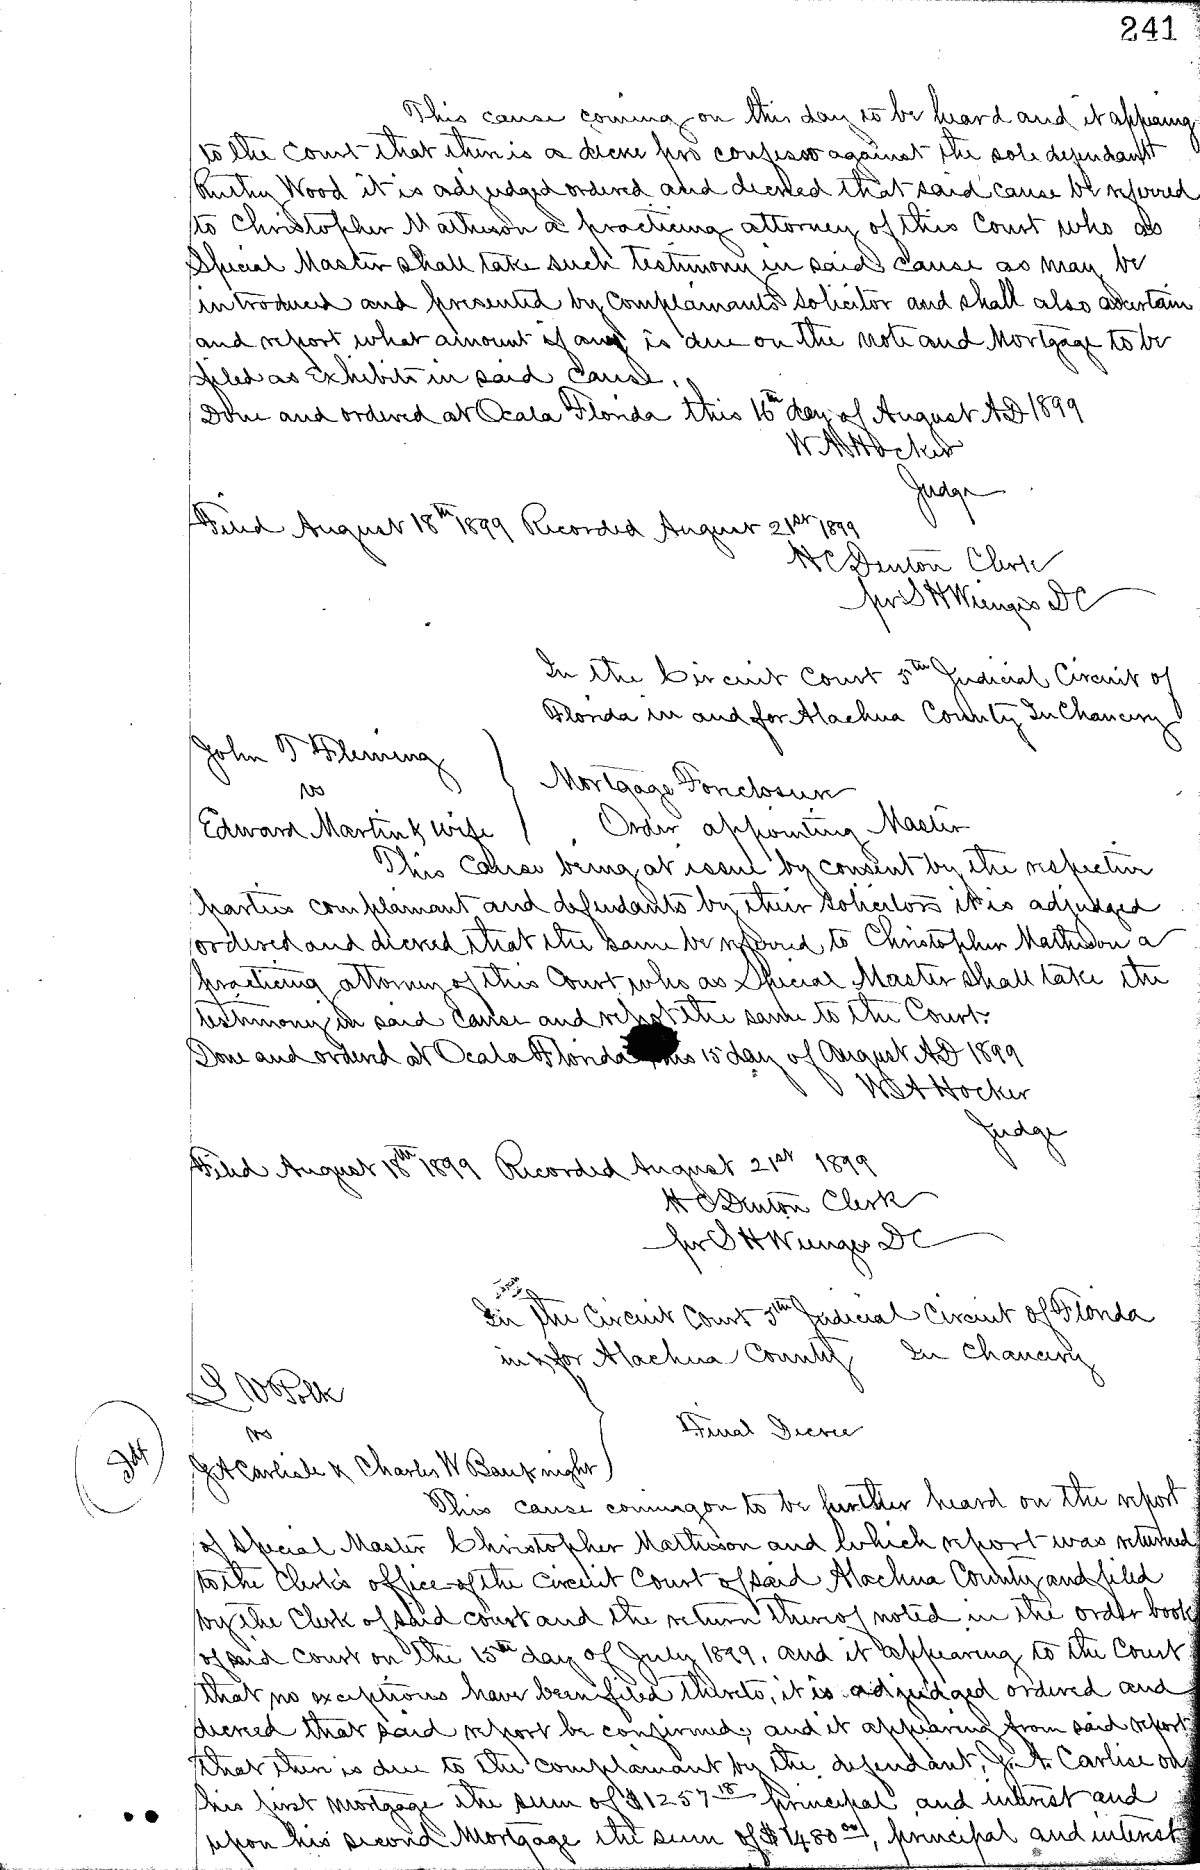 241
This cause coming on this day to be heard and it appearing
to the Court that there is a decree pro confesso against the sole defendant
Ruthy Wood it is adjudged ordered and decreed that said cause be referred
to Christopher Matheson a practicing attorney of this Court who as
Special Master shall take such testimony in said cause as may be
introduced and presented by Complainants Solicitor and shall also ascertain
and report what amount if any is due on the note and Mortgage to be
filed as Exhibits in said cause.
Done and ordered at Ocala Florida this 16th day of August AD 1899
W A Hocker
Judge
Filed August 18th 1899 Recorded August 21st 1899
H C Denton Clerk
per S H Wienges DC
In the Circuit Court 5th Judicial Circuit of
Florida in and for Alachua County In Chancery
John T Fleming
vs
Edward Martin & wife
Mortgage Foreclosure
Order appointing Master
This cause being at issue by consent by the respective
parties complainant and defendants by their Solicitors it is adjudged
ordered and decreed that the same be referred to Christopher Matheson a
practicing attorney of this Court who as Special Master shall take the
testimony in said cause and report the same to the Court.
Done and ordered at Ocala Florida this 15 day of August AD 1899
W A Hocker
Judge
Filed August 18th 1899 Recorded August 21st 1899
H C Denton Clerk
per S H Wienges DC
In the Circuit Court 5th Judicial Circuit of Florida
in & for Alachua County In Chancery
L W Polk
vs
J A Carlisle & Charles W Bauknight
Final Decree
This cause coming on to be further heard on the report
of Special Master Christopher Matheson and which report was returned
to the Clerk's office of the Circuit Court of said Alachua County and filed
by the Clerk of said court and the return thereof noted in the order book
of said Court on the 15th day of July 1899, and it appearing to the Court
that no exceptions have been filed thereto, it is adjudged ordered and
decreed that said report be confirmed; and it appearing from said report
that there is due to the complainant by the defendant, J. A. Carlise on
his first mortgage the sum of $1257 18 principal and interest and
upon his second Mortgage the sum of $1480 00, principal and interest